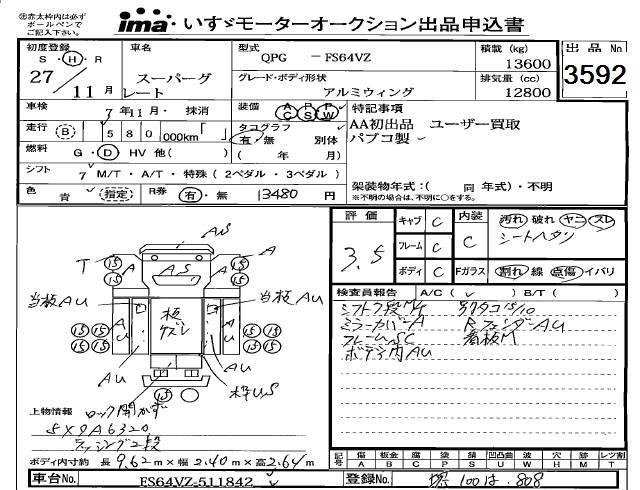 ㊟赤太枠内は必ず
ボールペンで
ご記入下さい。
ima いすゞモーターオークション出品申込書
初度登録 車名 型式 QPG - FS64VZ 積載 (kg) 13600 出品 No
S・H・R 27/11月 スーパーグレート グレード・ボディ形状 アルミウィング 排気量 (cc) 12800 3592
車検 7年11月・抹消 装備 AC PS PW 特記事項
走行 (B) 580 000km「 」 タコグラフ 有・無 別体 AA初出品 ユーザー買取
パブコ製
燃料 G・D HV 他( ) ( 年 月)
シフト 7 M/T・A/T・特殊(2ペダル・3ペダル) 架装物年式:( 同 年式)・不明
色 青 (指定) R券 有・無 13480円 ※不明の場合は、不明に○をする。
評価 3.5 キャブ C 内装 C 汚れ 破れ ヤニ スレ
シートヘタリ
フレーム C
ボディ C Fガラス 割れ 線 点傷 イバリ
検査員報告 A/C( ✓ ) B/T( )
ミラーカバーA RフェンダーAU
フレームSC 看板M
ボデー内AU
AS
T 15 15 A AS A 15 15
当板AU 当板AU
板ズレ
15 15 A U A U 15 15
15 15 15 15
AU AU 枠US
15
上物情報 ロック開かず
5X9A6320
ラッシング2段
ボディ内寸約 長 9.62m×幅 2.40m×高 2.64m
記号 傷 板金 腐 塗 錆 凹凸曲 波 穴 跡 レツ割
A B C P S U W H M T
車台No. FS64VZ-511842 登録No. 堺 100 は 808